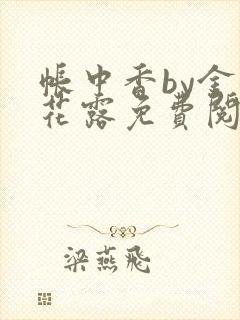 帳中香by金
花露免費閱
梁燕飛